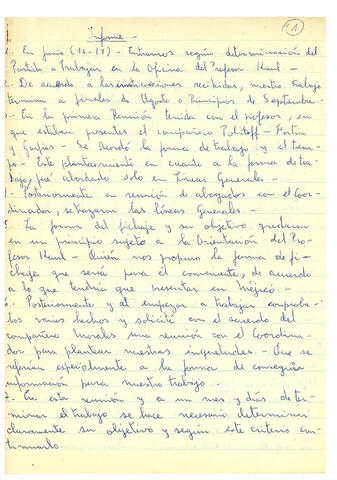 Informe -
1
1. En Junio (16-17) - Entramos según determinación del
Partido a Trabajar en la Oficina del Profesor Kaul. -
2. - De acuerdo a las instrucciones recibidas, nuestro Trabajo
termina a finales de Agosto o Principios de Septiembre. -
3. - En la primera Reunión tenida con el profesor, en
que estaban presentes el compañero Politoff -
y - Se acordó la forma de trabajo y el tiem-
po - Este planteamiento en cuanto a la forma de tra-
bajo, fué abordado solo en Líneas Generales. -
4. Posteriormente en reunión de abogados con el Coor-
dinador, se trazaron las líneas Generales. -
5. La forma del fichaje y su objetivo quedaron
en un principio sujeto a la Orientación del Pro-
fesor Kaul - Quién nos propuso la forma de fi-
chaje que sería para él conveniente, de acuerdo
a lo que tendría que presentar en Méjico. -
6. Posteriormente y al empezar a trabajar comproba-
mos varios hechos y solicité con el acuerdo del
compañero Morales una reunión con el Coordina-
dor para plantear nuestras inquietudes. - Que se
referían especialmente a la forma de conseguir
información para nuestro trabajo. -
7. En esta reunión y a un mes y días de ter-
minar el trabajo se hace necesario determinar
claramente su objetivo y según este criterio con-
tinuarlo.